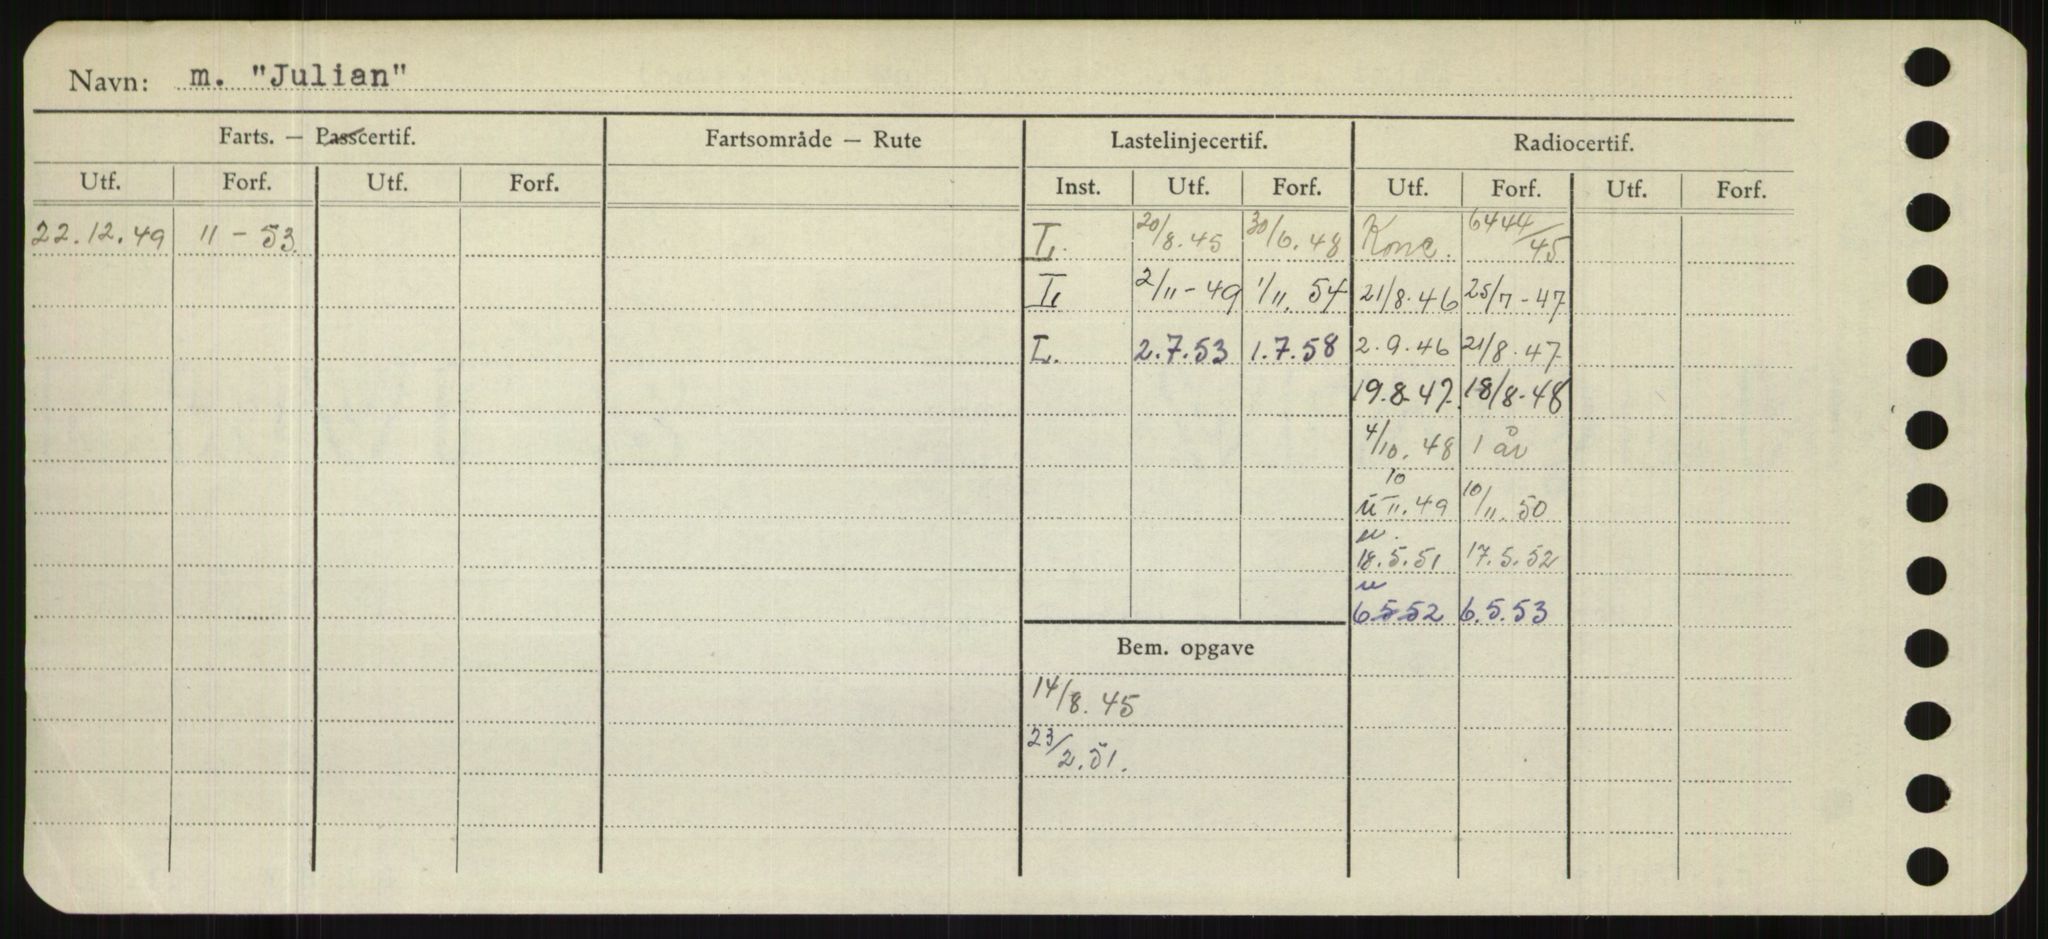 Navn: m. "Julian"
Farts. — Passcertif. Fartsområde — Rute Lastelinjecertif. Radiocertif.
Utf. Forf. Utf. Forf. Inst. Utf. Forf. Utf. Forf. Utf. Forf.
22.12.49 11-53 L. 20/8.45 30/6.48 Konc. 6444/45
L 2/11-49 1/11. 54 21/8.46 25/7-47
L. 2.7.53 1.7.58 2.9.46 21/8.47
19.8.47. 18/8.48
4/10.48 1 år
11.49 10/11.50
18.5.51 17.5.52
6.5.52 6.5.53
Bem. opgave
14/8.45
23/2.51.